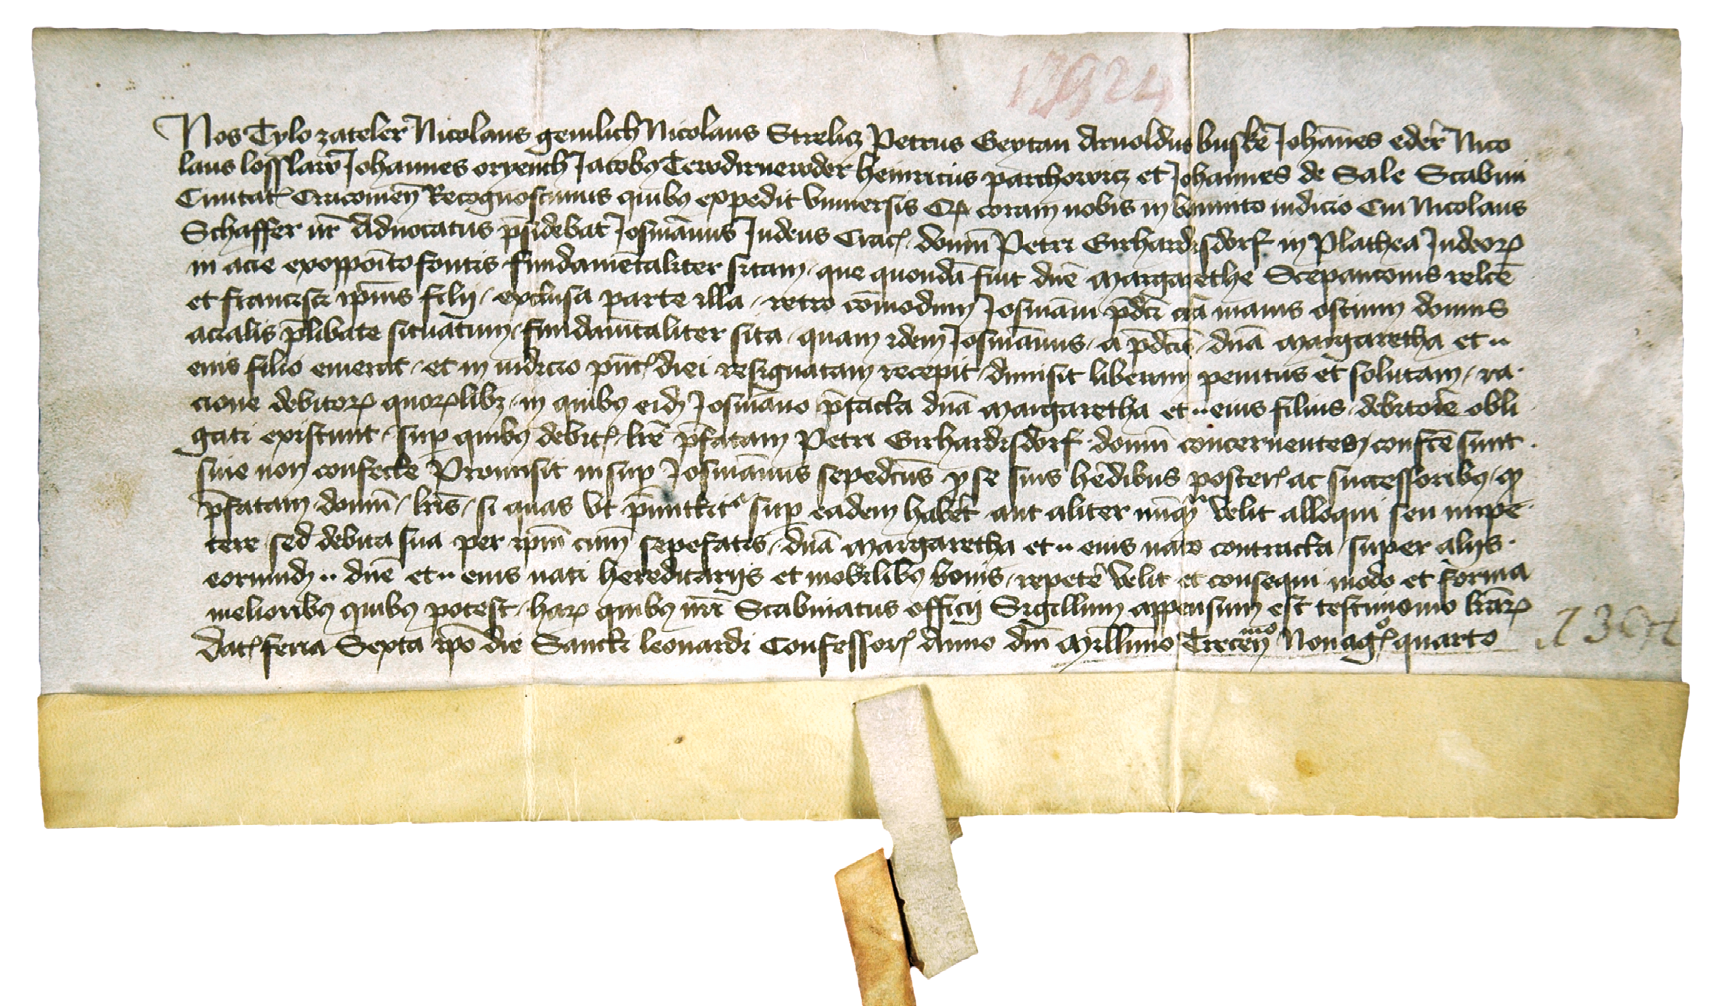 17924
Nos Tylo zateler Nicolaus gemlich Nicolaus Strelicz Petrus Geytan Arnoldus Johānes eder Nico
laus Johannes Jacobus Heinricus parchowicz et Johannes de Sale Scabini
Ciuitat Cracouien Recognoscimus quibus expedit vniuersis Qz coram nobis in bannito iudicio Cui Nicolaus
Schaffer nr̄ Aduocatus p̄sidebat Josmānus Judeus Crac domū Petri Girhardisdorf in Plathea Judeorꝝ
in acie exopposito fontis fundamētaliter sitam que quondā fuit dn̄e Margarethe relcē
et francisci ip̄ius filij exclusa parte illa retro cōmodum Josmāni p̄dc̄i manus ostium domus
acialis p̄libate situatum fundamētaliter sita quam idem Josmānus a p̄dc̄a dn̄a Margaretha et ··
eius filio emerat et in iudicio diei resignatam recepit dimisit liberam penitus et solutam ra
cione debitorꝝ quorꝝlibꝫ in quibus eidꝫ Josmāno p̄facta dn̄a Margaretha et ·· eius filius debitorie obli
gati existunt sup quibus debit lrē p̄fatam Petri Girhardisdorf domū concernentes confc̄e sunt
siue non confecte Promisit insup Josmānus sepedc̄us p se suis hēdibus poster ac successoribus qꝫ
p̄fatam domū lrīs si quas vt sup eadem habet aut aliter nūqꝫ velit alloqui seu inpe
tere sed debita sua per ip̄m cum sepefatis dn̄a Margaretha et ·· eius nato contracta super alijs
eorundꝫ ·· dn̄e et ·· eius nati hereditarijs et mobilibus bonis repetē velit et consequi modo et forma
melioribus quibus potest harꝝ quibus nrī Scabinatus officij Sigillum appensum est testimonio lrārꝝ
Dat feria Sexta ip̄o die Sancti leonardi Confessor Anno dn̄i Millimo Trecen̄mo Nonag̊ quarto
1394